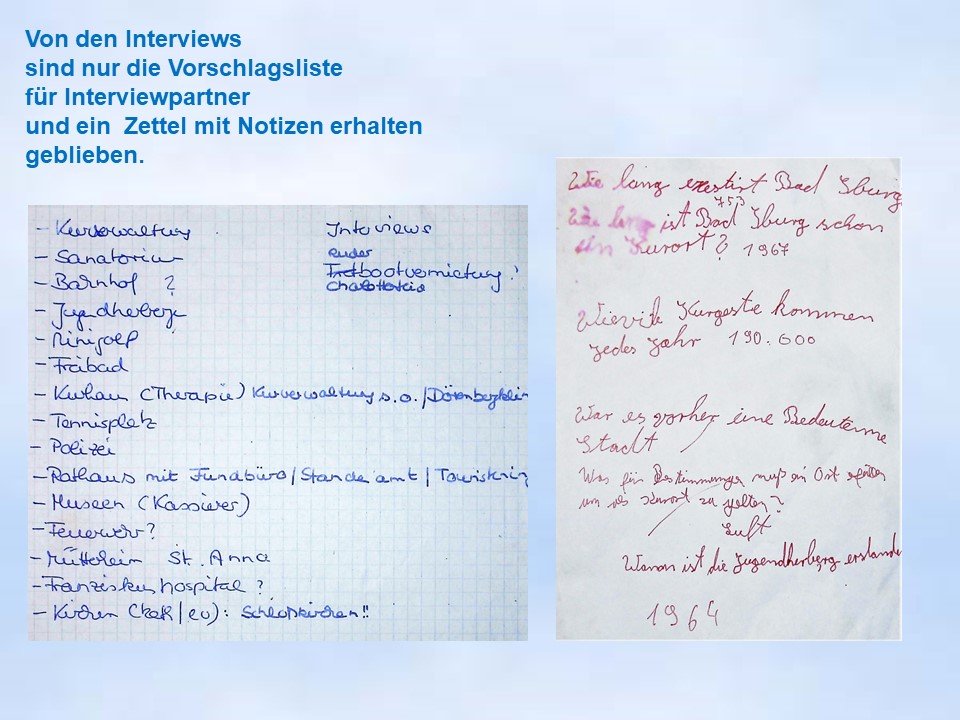 Von den Interviews
sind nur die Vorschlagsliste
für Interviewpartner
und ein Zettel mit Notizen erhalten
geblieben.
- Kurverwaltung
- Sanatorium
- Bahnhof ?
- Jugendherberge
- Minigolf
- Freibad
- Kurhaus (Therapie) Kurverwaltung s.o. / Dörenbergklin
- Tennisplatz
- Polizei
- Rathaus mit Fundbüro / Standesamt /
- Museen (Kassierer)
- Feuerwehr?
- St. Anna
- Franziskushospital ?
- Kirchen (kath / ev): Schloßkirchen!!
Interviews
Ruder
bootvermietung ?
Charlottensee
Wie lang exestirt Bad Iburg
753
Wie lang ist Bad Iburg schon
ein Kurort? 1967
Wievile Kurgeste kommen
jedes Jahr 190.600
War es vorher eine
Stadt
Was für Bestimmungen muß ein Ort
um als Kurort zu gelten?
Luft
Wanan ist die Jugendherberg erstanden
1964